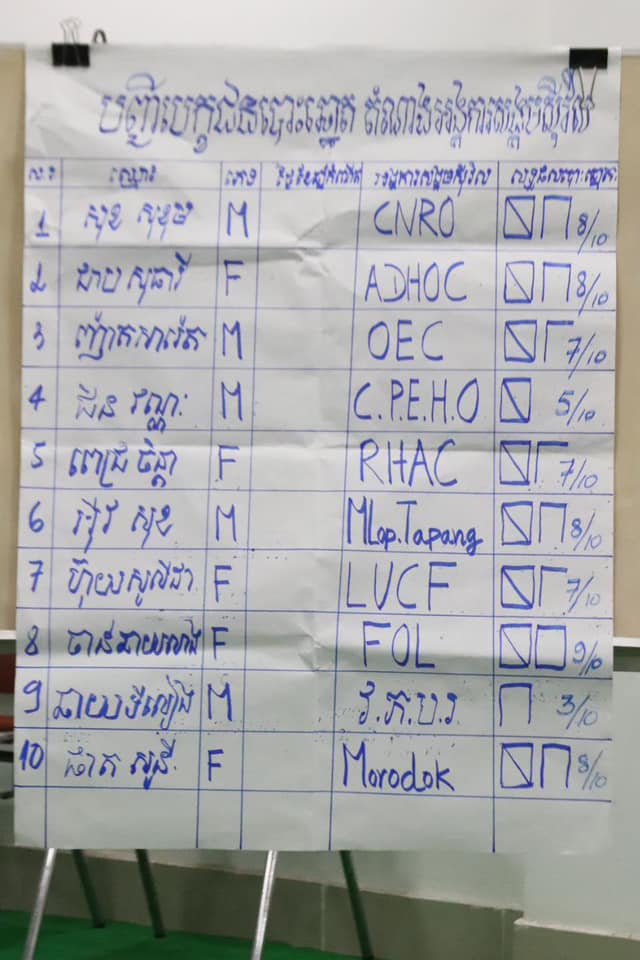 បញ្ជីបេក្ខជនបោះឆ្នោត តំណាងអង្គការសង្គមស៊ីវិល
ល.រ ឈ្មោះ ភេទ អង្គការសង្គមស៊ីវិល លទ្ធផលបោះឆ្នោត
1 សុខ សុខុម M CNRO 8/10
2 ជាប សុធាវី F ADHOC 8/10
3 M OEC 7/10
4 ជិន វណ្ណៈ M C.P.E.H.O 5/10
5 ពេជ្រ ចិន្តា F RHAC 7/10
6 អ៊ីវ សុខ M Mlop.Tapang 8/10
7 ហ៊ុយ សូលីដា F LVCF 7/10
8 ចាន់ ឆាយហៀង F FOL 9/10
9 M វ.ភ.ប.រ 3/10
10 ផាត សូនី F Morodok 8/10